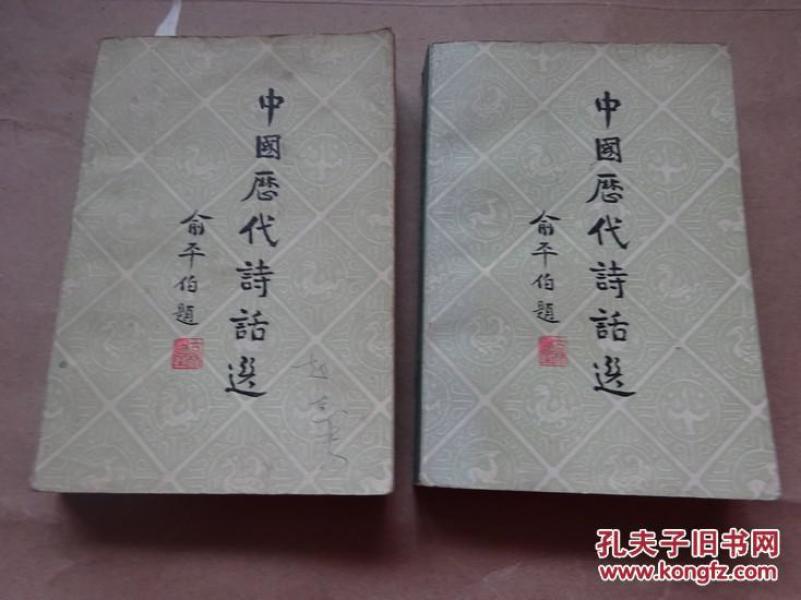 中國歷代詩話選
俞平伯題
中國歷代詩話選
俞平伯題
孔夫子旧书网
www.kongfz.com